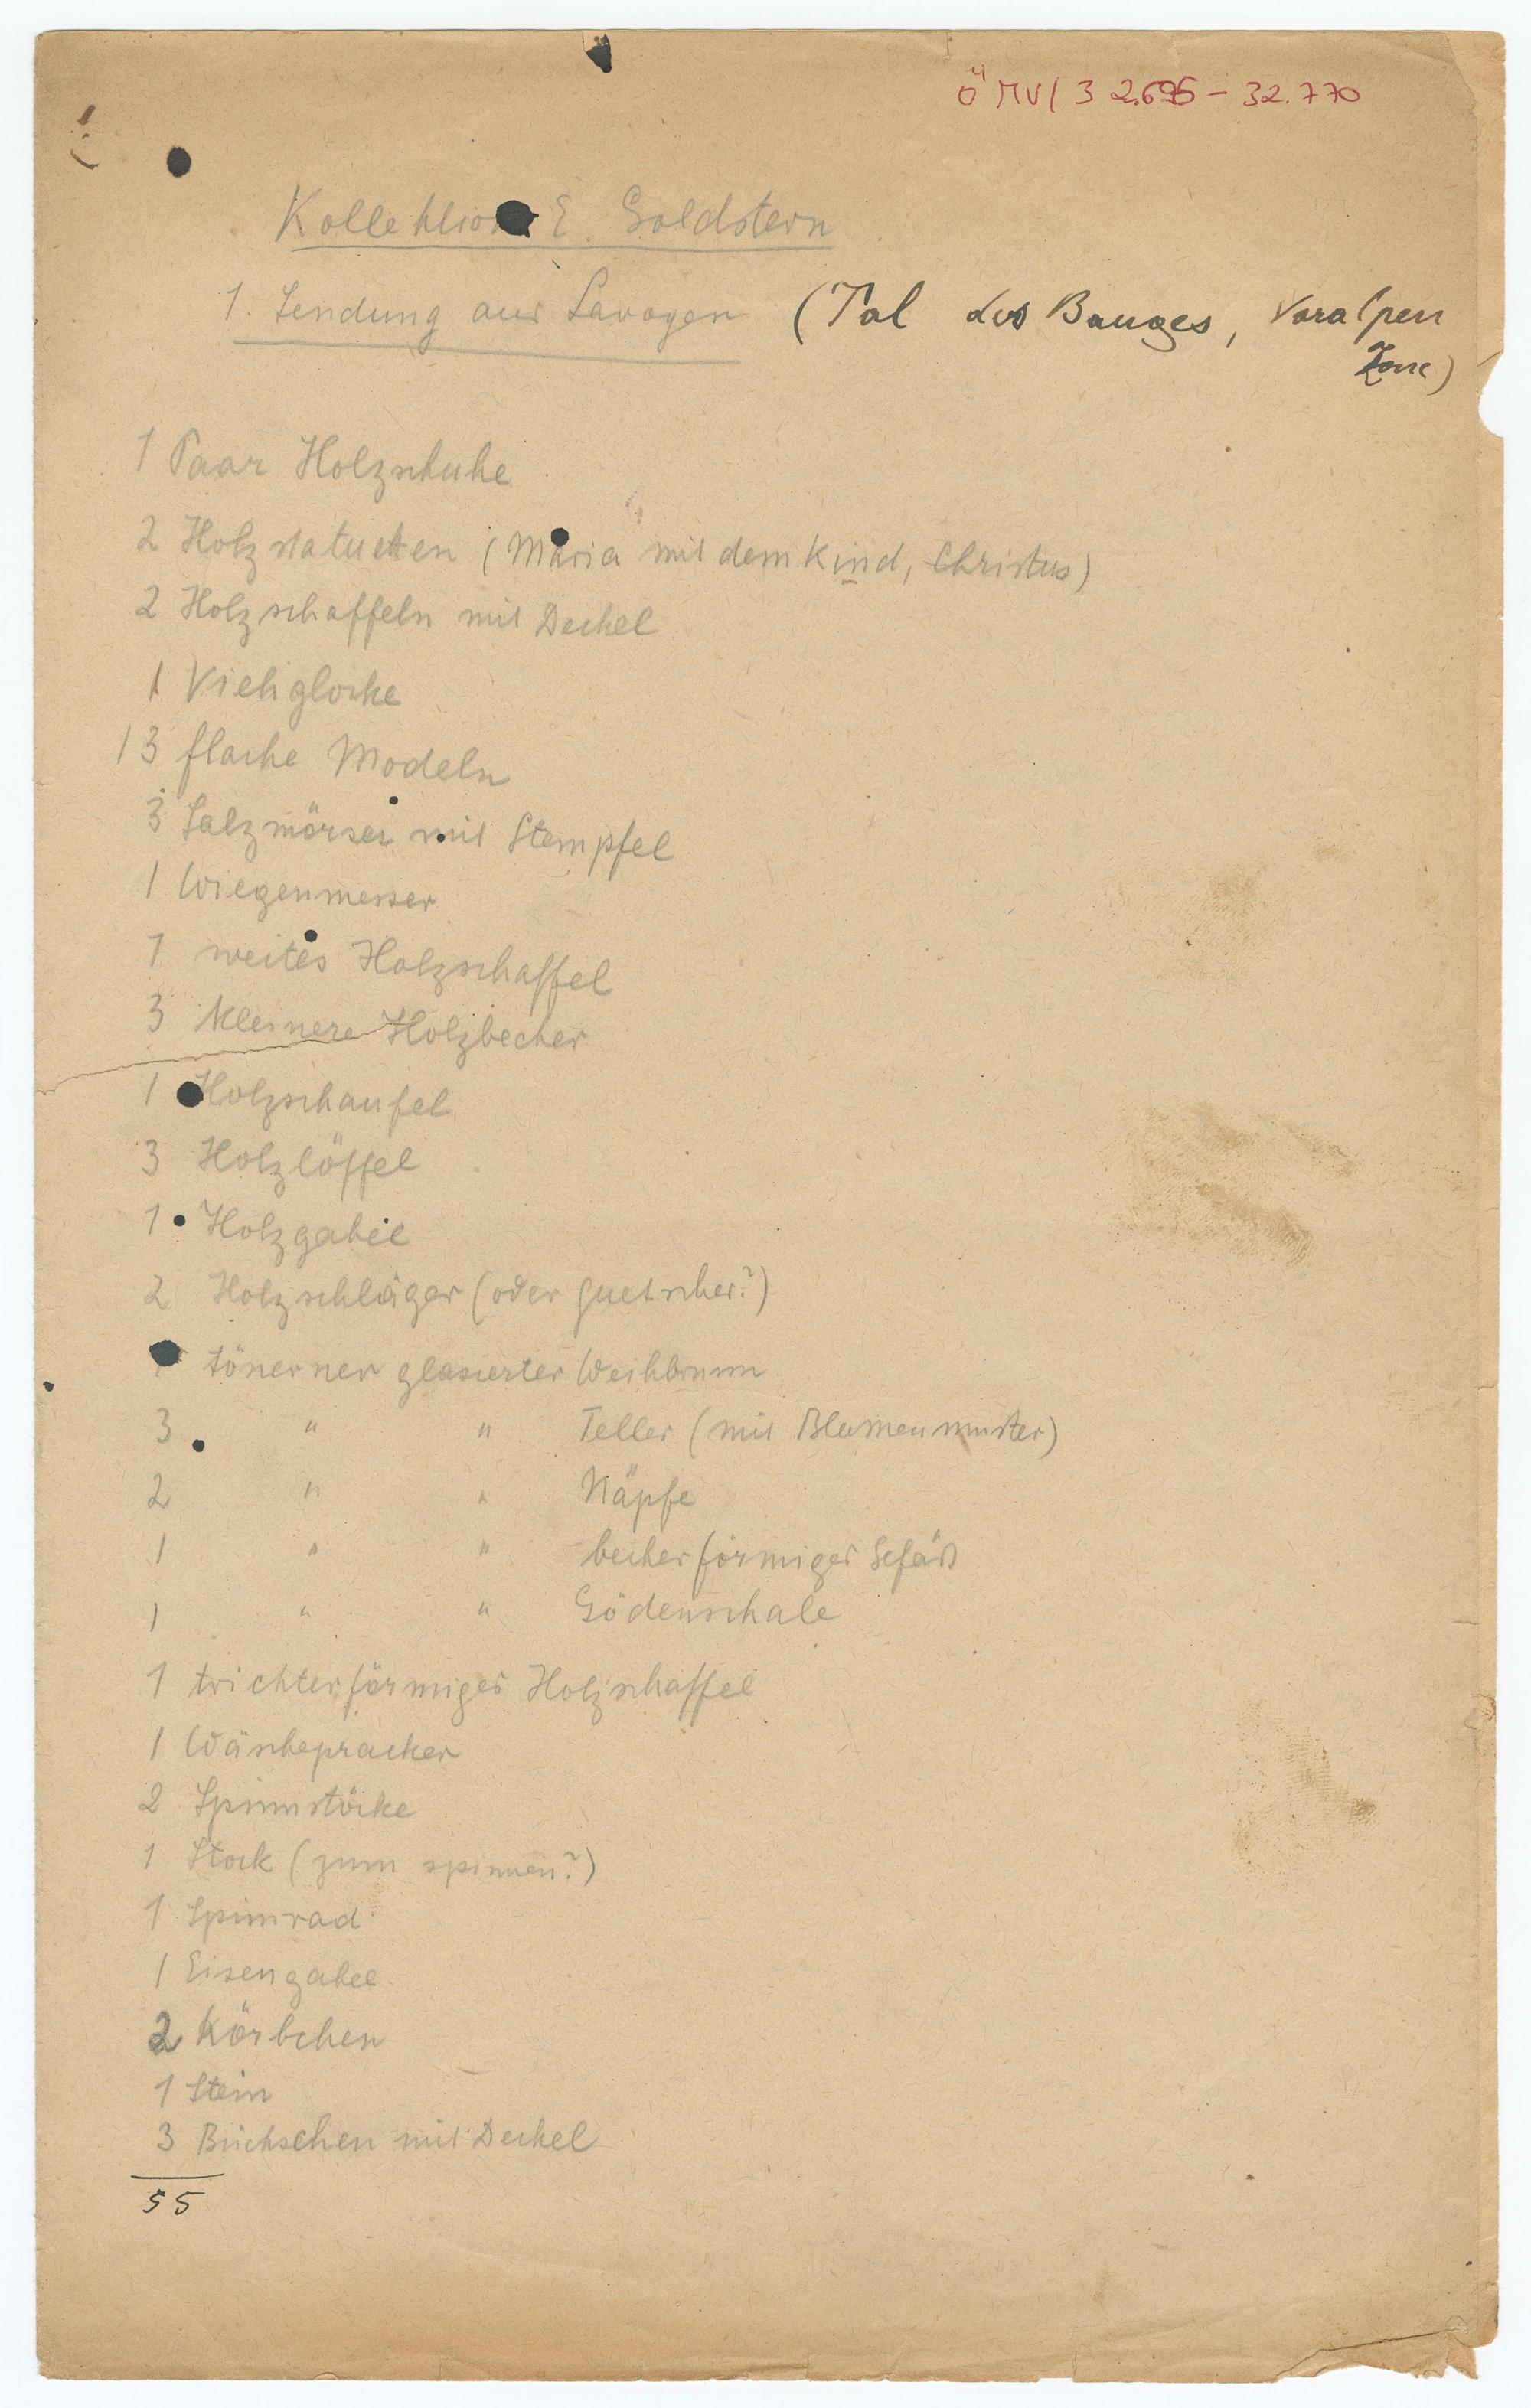 ÖMV/32.695 – 32.770
Kollektion E. Goldstern
1. Sendung aus Savoyen (Tal des Bauges, Voralpen
Zone)
1 Paar Holzschuhe
2 Holzstatuetten (Maria mit dem Kind, Christus)
2 Holzschaffeln mit Deckel
1 Viehglocke
13 flache Modeln
3 Salzmörser mit Stempfel
1 Wiegenmesser
1 weites Holzschaffel
3 kleinere Holzbecher
1 Holzschaufel
3 Holzlöffel
1 Holzgabel
2 Holzschläger (oder Quetscher?)
tönerner glasierter Weihbrunn
3 " " Teller (mit Blumenmuster)
2 " " Näpfe
1 " " becherförmiges Gefäß
1 " " Gödenschale
1 trichterförmiges Holzschaffel
1 Wäschepracker
2 Spinnstöcke
1 Stock (zum spinnen?)
1 Spinnrad
1 Eisengabel
2 Körbchen
1 Stein
3 Büchschen mit Deckel
55